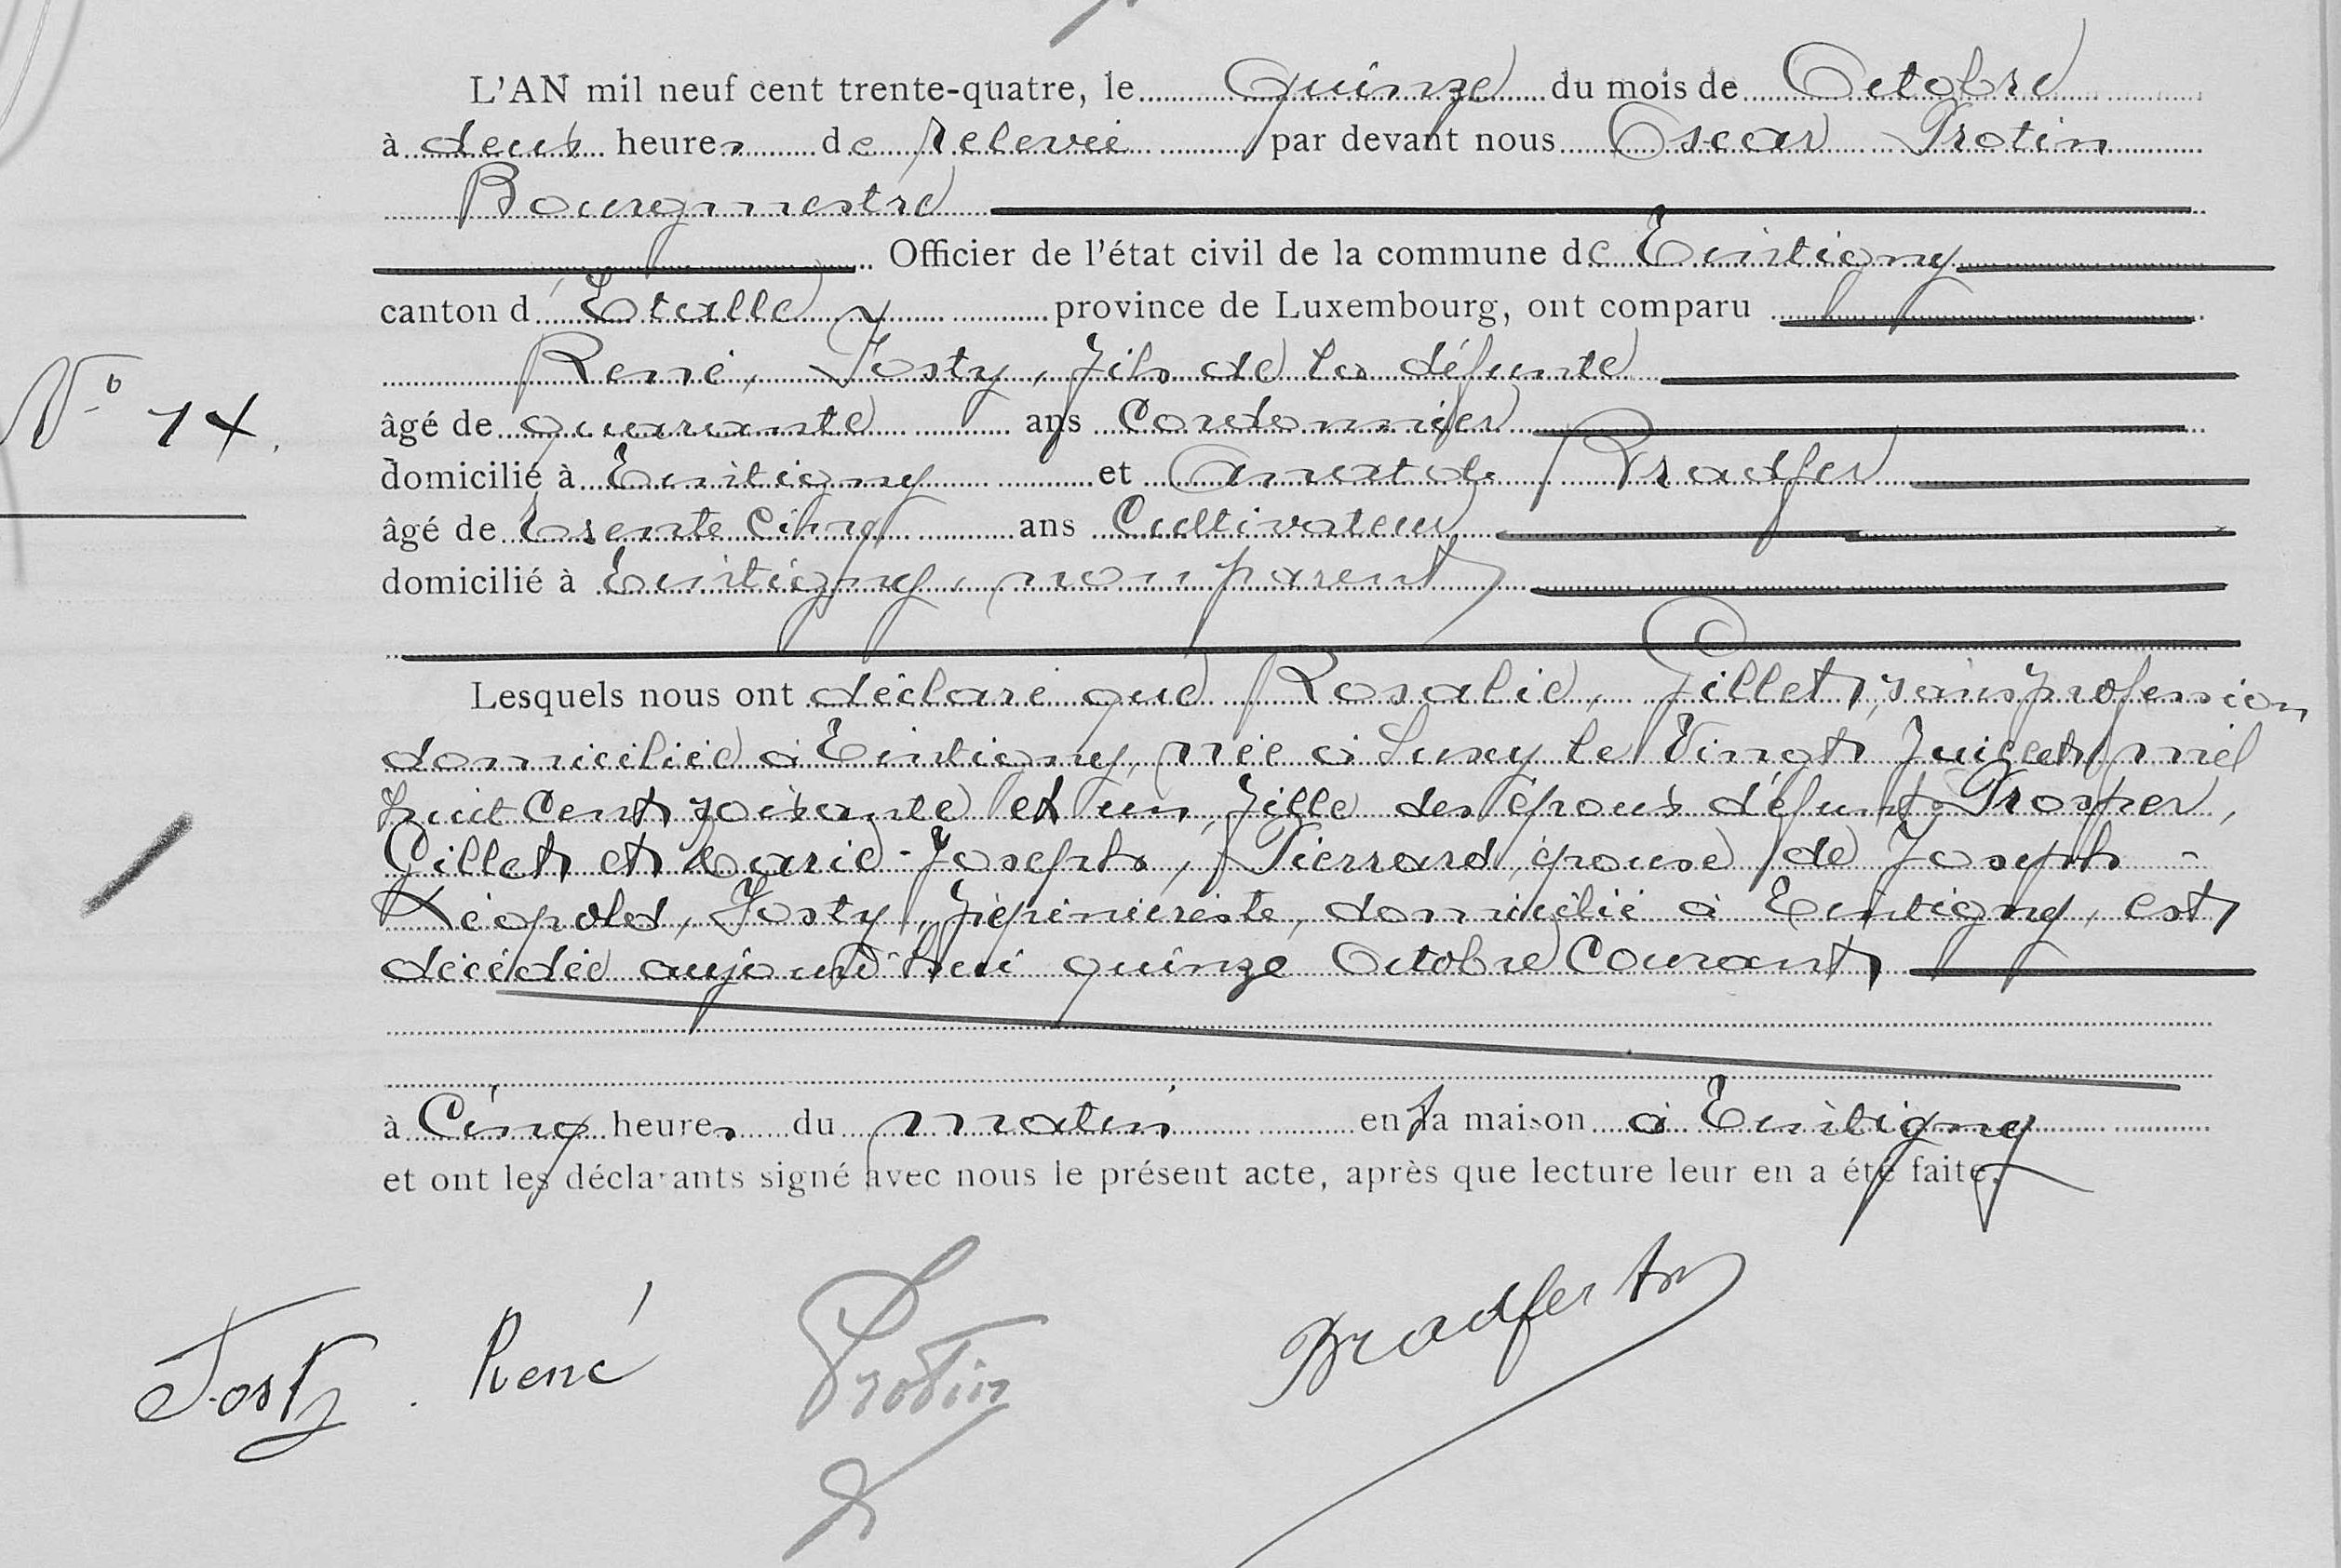 L'AN mil neuf cent trente-quatre, le Quinze du mois de Octobre
à deux heures de relevée par devant nous Oscar Protin
Bourgmestre
Officier de l'état civil de la commune de Tintigny
canton d'Etalle province de Luxembourg, ont comparu
René, Josty, fils de la défunte
N° 14.
âgé de quarante ans Cordonnier
domicilié à Tintigny et Anatole Bradfer
âgé de trente cinq ans Cultivateur
domicilié à Tintigny, non parent
Lesquels nous ont déclaré que Rosalie, Gillet, sans profession
domiciliée à Tintigny, née à Suxy le Vingt Juillet mil
huit cent soixante et un, fille des époux défunts Prosper,
Gillet et Marie-Josepha, Pierrard, épouse de Joseph-
Léopold, Josty, Pépiniériste, domicilié à Tintigny, est
décédée aujourd'hui quinze Octobre Courant
à Cinq heures du matin en sa maison à Tintigny
et ont les déclarants signé avec nous le présent acte, après que lecture leur en a été faite.
Josty. René Protin Bradfer An